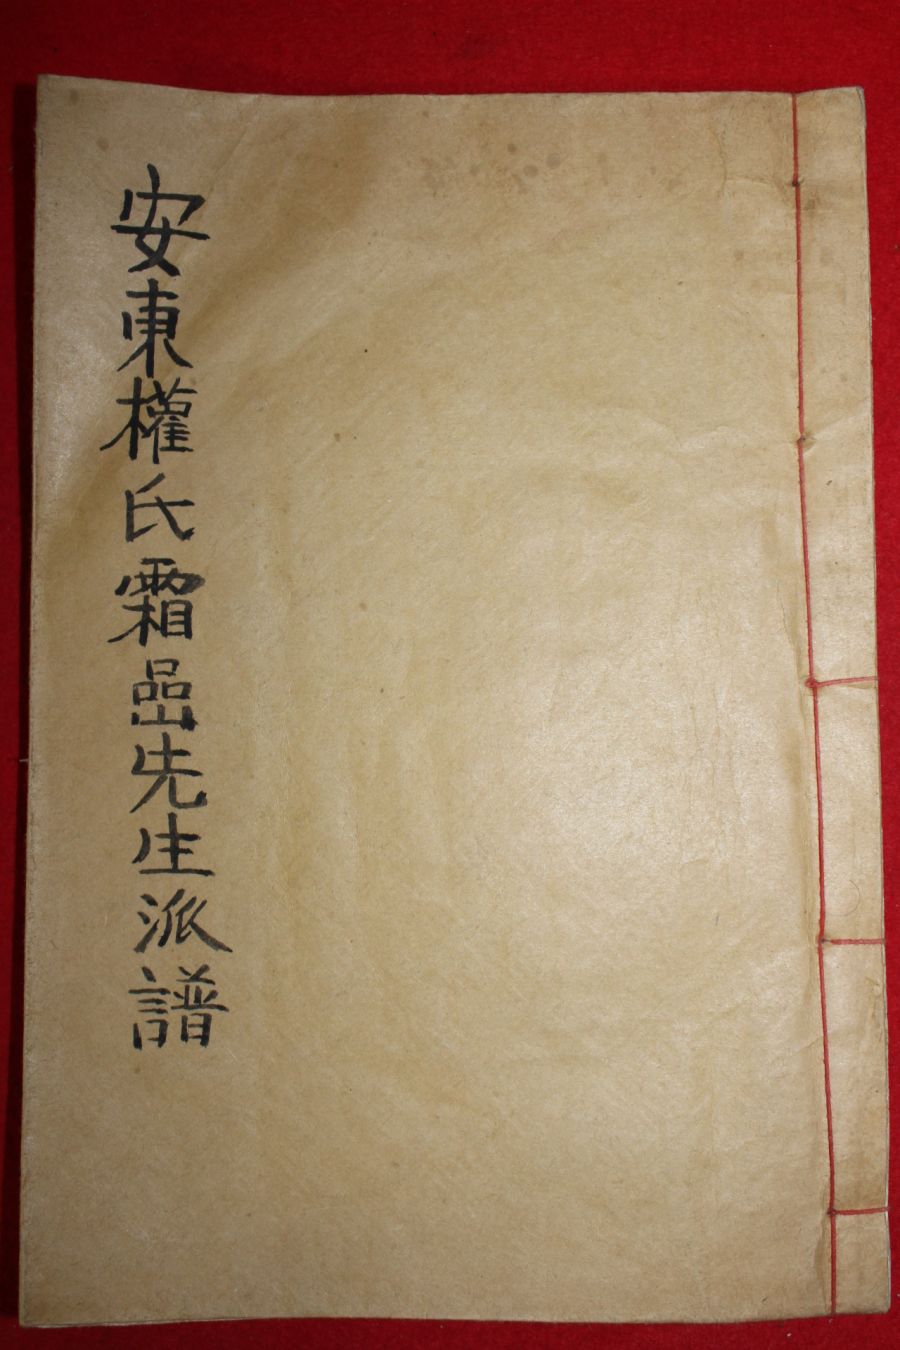 安東權氏霜嵒先生派譜